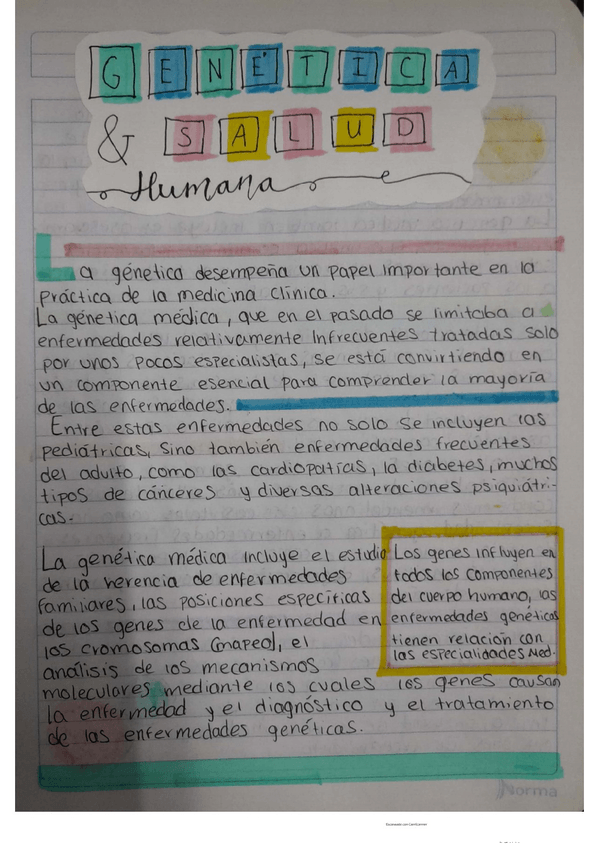 GENÉTICA
& SALUD
Humana
La génetica desempeña un papel importante en la
práctica de la medicina clínica.
La génetica médica, que en el pasado se limitaba a
enfermedades relativamente infrecuentes tratadas solo
por unos pocos especialistas, se está convirtiendo en
un componente esencial para comprender la mayoría
de las enfermedades.
Entre estas enfermedades no solo se incluyen las
pediátricas, sino también enfermedades frecuentes
del adulto, como las cardiopatías, la diabetes, muchos
tipos de cánceres y diversas alteraciones psiquiátri-
cas.
La genética médica incluye el estudio
de la herencia de enfermedades
familiares, las posiciones específicas
de los genes de la enfermedad en
los cromosomas (mapeo), el
análisis de los mecanismos
moleculares mediante los cuales los genes causan
la enfermedad y el diagnóstico y el tratamiento
de las enfermedades genéticas.
Los genes influyen en
todos los componentes
del cuerpo humano, las
enfermedades genéticas
tienen relación con
las especialidades Med.
Norma